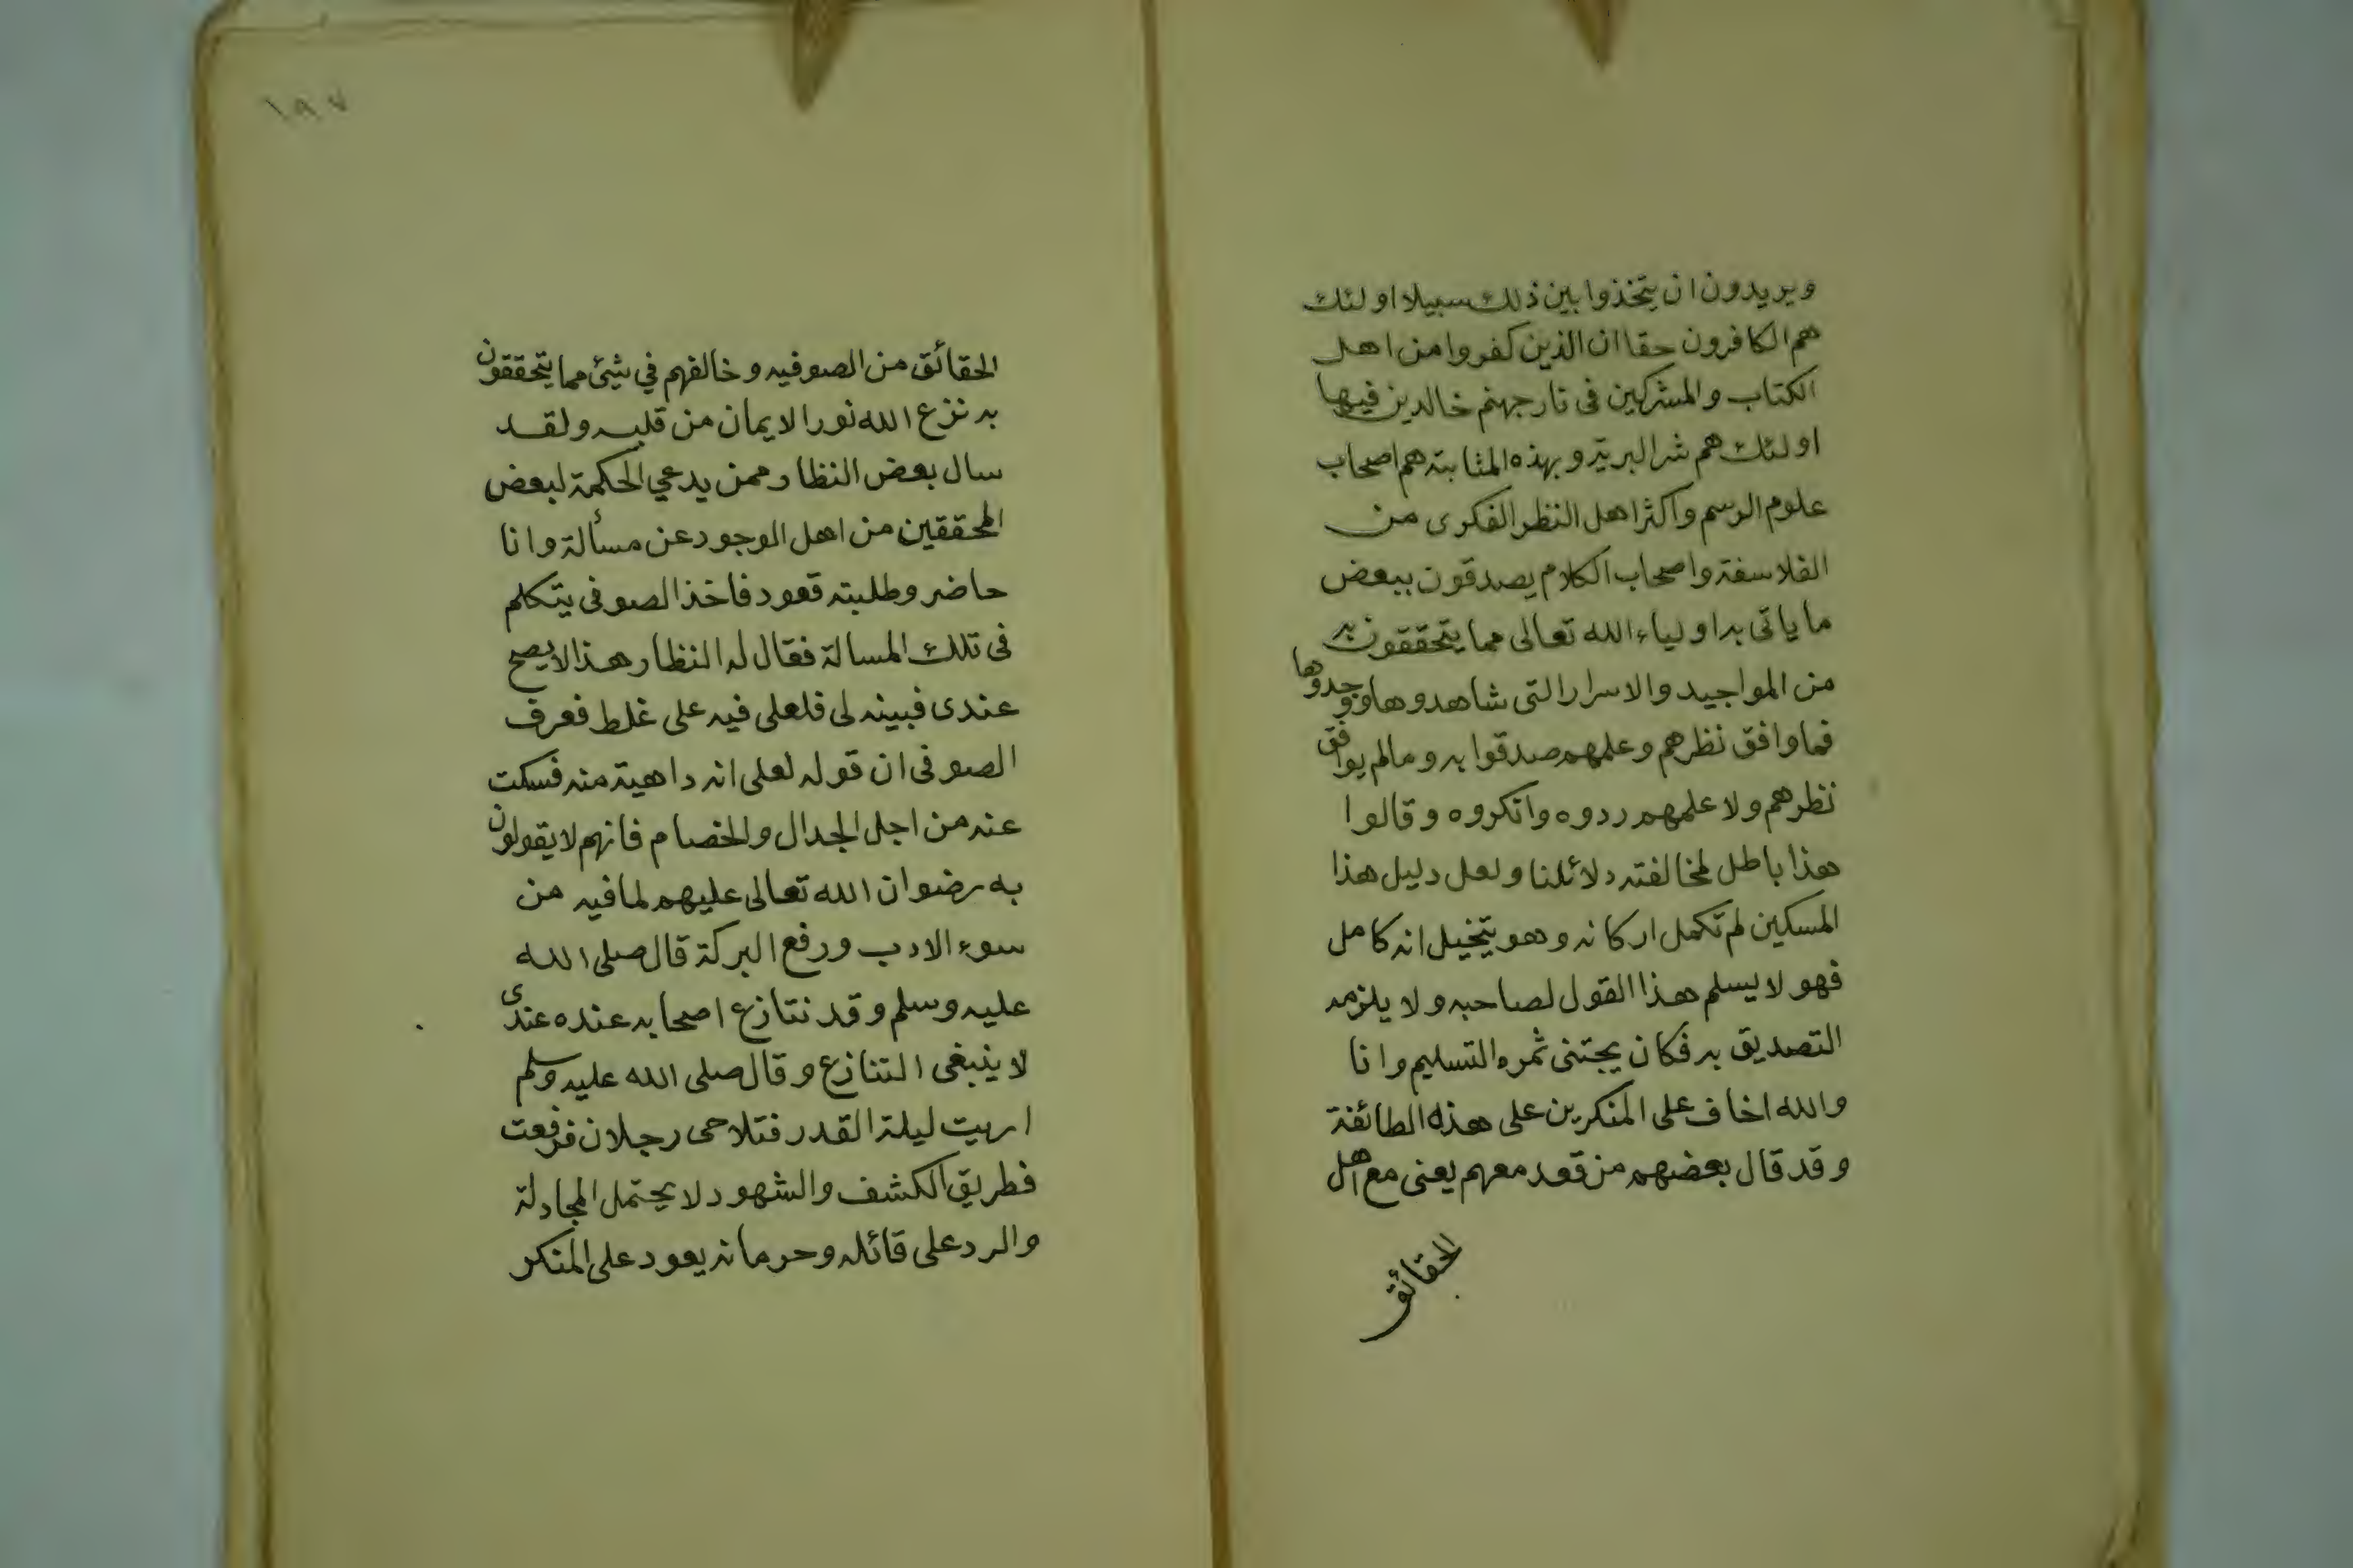 ويريدون ان يتخذوا بين ذلك سبيلا اولئك
هم الكافرون حقا ان الذين كفروا من اهل
الكتاب والمشركين فى نار جهنم خالدين فيها
اولئك هم شر البرية وبهذه المثابة هم اصحاب
علوم الرسم واكثر اهل النظر الفكرى من
الفلاسفة واصحاب الكلام يصدقون ببعض
ما ياتى به اولياء الله تعالى مما يتحققون به
من المواجيد والاسرار التى شاهدوها ووجدوها
فما وافق نظرهم وعلمهم صدقوا به وما لم يوافق
نظرهم ولا علمهم ردوه وانكروه وقالوا
هذا باطل لمخالفته دلائلنا ولعل دليل هذا
المسكين لم تكمل اركانه وهو يتخيل انه كامل
فهو لا يسلم هذا القول لصاحبه ولا يلزمه
التصديق به فكان يجتنى ثمره التسليم وانا
والله اخاف على المنكرين على هذه الطائفة
وقد قال بعضهم من قعد معهم يعنى مع اهل
الحقائق
١٩٧
الحقائق من الصوفيه وخالفهم في شيئ مما يتحققون
به نزع الله نور الايمان من قلبه ولقد
سال بعض النظار ممن يدعي الحكمة لبعض
المحققين من اهل الوجود عن مسألة وانا
حاضر وطلبته قعود فاخذ الصوفى يتكلم
فى تلك المسالة فقال له النظار هذا لا يصح
عندى فبينه لى فلعلى فيه على غلط فعرف
الصوفى ان قوله لعلى انه داهية منه فسكت
عنه من اجل الجدال والخصام فانهم لا يقولون
به رضوان الله تعالى عليهم لما فيه من
سوء الادب ورفع البركة قال صلى الله
عليه وسلم وقد نتازع اصحابه عنده عندى
لا ينبغى التنازع وقال صلى الله عليه وسلم
اريت ليلة القدر فتلاحى رجلان فرفعت
فطريق الكشف والشهود لا يحتمل المجادلة
والرد على قائله وحرمانه يعود على المنكر